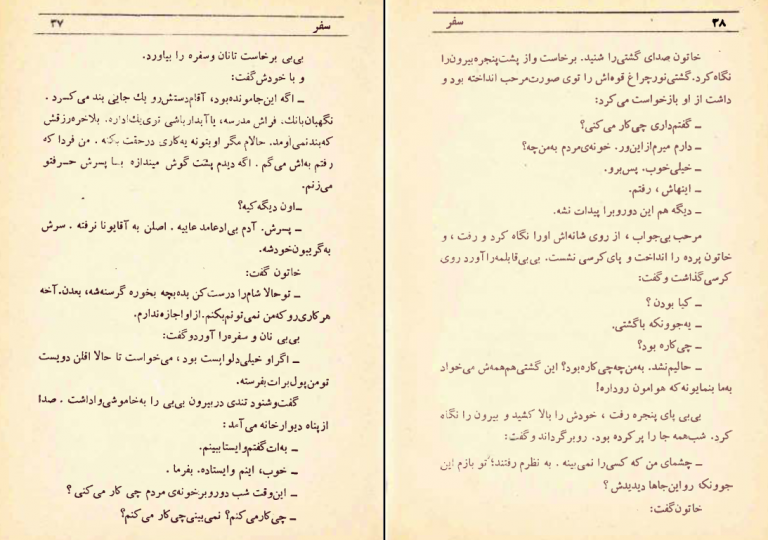 سفر ۳۷
بی‌بی برخاست تانان وسفره را بیاورد.
و با خودش گفت:
ــ اگه این‌جامونده‌بود، آقام‌دستش‌رو یك جایی بند می‌کسرد .
نگهبان‌بانك. فراش مدرسه، یاآبدارباشی توی‌یك‌اداره. بلاخره‌رزقش
که‌بندنمی‌اومد. حالام مگر اوبتونه یه‌کاری درحقت بکنه . من فردا که
رفتم به‌اش می‌گم . اگه دیدم پشت گوش میندازه بسا پسرش حسرفتو
می‌زنم.
ــ اون دیگه کیه؟
ــ پسرش. آدم بی‌ادعامد عاییه . اصلن به آقایونا نرفته . سرش
به‌گریبون‌خودشه.
خاتون گفت:
ــ توحالا شام‌را درست‌کن بده‌بچه بخوره گرسنه‌شه، بعدن. آخه
هرکاری‌روکه‌من نمی‌تونم‌بکنم. ازاو‌اجازه‌ندارم.
بی‌بی نان و سفره‌را آوردو‌گفت:
ــ اگراو خیلی‌دلواپست بود ، می‌خواست تا حالا اقلن دویست
تومن‌پول‌برات‌بفرسته.
گفت‌وشنود تندی دربیرون بی‌بی را به‌خاموشی‌واداشت . صدا
ازپناه دیوارخانه می‌آمد :
ــ به‌ات‌گفتم‌وایستابینم.
ــ خوب، اینم وایستاده. بفرما .
ــ این‌وقت شب دوروبرخونه‌ی مردم چی کار می‌کنی ؟
ــ چی‌کارمی‌کنم؟ نمی‌بینی‌چی‌کار می‌کنم؟
۳۸ سفر
خاتون صدای گشتی‌را شنید. برخاست واز پشت‌پنجره‌بیرون‌را
نگاه‌کرد. گشتی‌نورچراغ قوه‌اش را توی صورت‌مرحب انداخته بود و
داشت از او بازخواست می‌کرد:
ــ گفتم‌داری چی‌کار می‌کنی؟
ــ دارم میرم‌ازاین‌ور. خونه‌ی‌مردم به‌من‌چه؟
ــ خیلی‌خوب. پس‌برو.
ــ اینهاش ، رفتم.
ــ دیگه هم این دوروبرا پیدات نشه.
مرحب بی‌جواب ، از روی شانه‌اش اورا نگاه کرد و رفت ، و
خاتون پرده را انداخت و پای‌کرسی نشست. بی‌بی‌قابلمه‌راآورد روی
کرسی‌گذاشت وگفت:
ــ کیا بودن ؟
ــ یه‌جوونکه باگشتی.
ــ چی‌کاره بود؟
ــ حالیم‌نشد. به‌من‌چه‌چی‌کاره‌بود؟ این گشتی‌هم‌همه‌ش می‌خواد
به‌ما بنمایونه‌که هوامون روداره!
بی‌بی پای پنجره رفت ، خودش را بالا کشید و بیرون را نگاه
کرد. شب‌همه جا را پرکرده بود. روبرگرداند وگفت:
ــ چشمای من که کسی‌را نمی‌بینه . به نظرم رفتند؛ تو بازم این
جوونکه رواین‌جاها دیدیدش ؟
خاتون‌گفت: